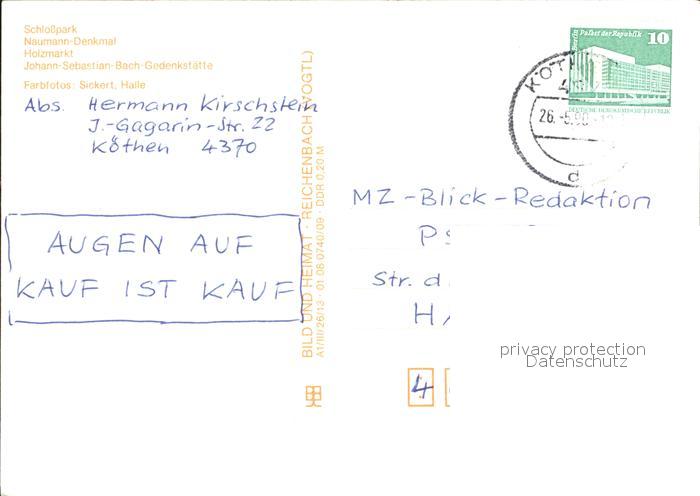 Schloßpark
Naumann-Denkmal
Holzmarkt
Johann-Sebastian-Bach-Gedenkstätte
Farbfotos: Sickert, Halle
Abs. Hermann Kirschstein
J.-Gagarin-Str. 22
Köthen 4370
AUGEN AUF
KAUF IST KAUF
BILD UND HEIMAT · REICHENBACH (VOGTL)
A1/III/26/13 · 01 08 0740/09 · DDR 0,20 M
Berlin, Palast der Republik 10
DEUTSCHE DEMOKRATISCHE REPUBLIK
KÖT
26.-5.90
d
MZ-Blick-Redaktion
Str. d
H
4
privacy protection
Datenschutz